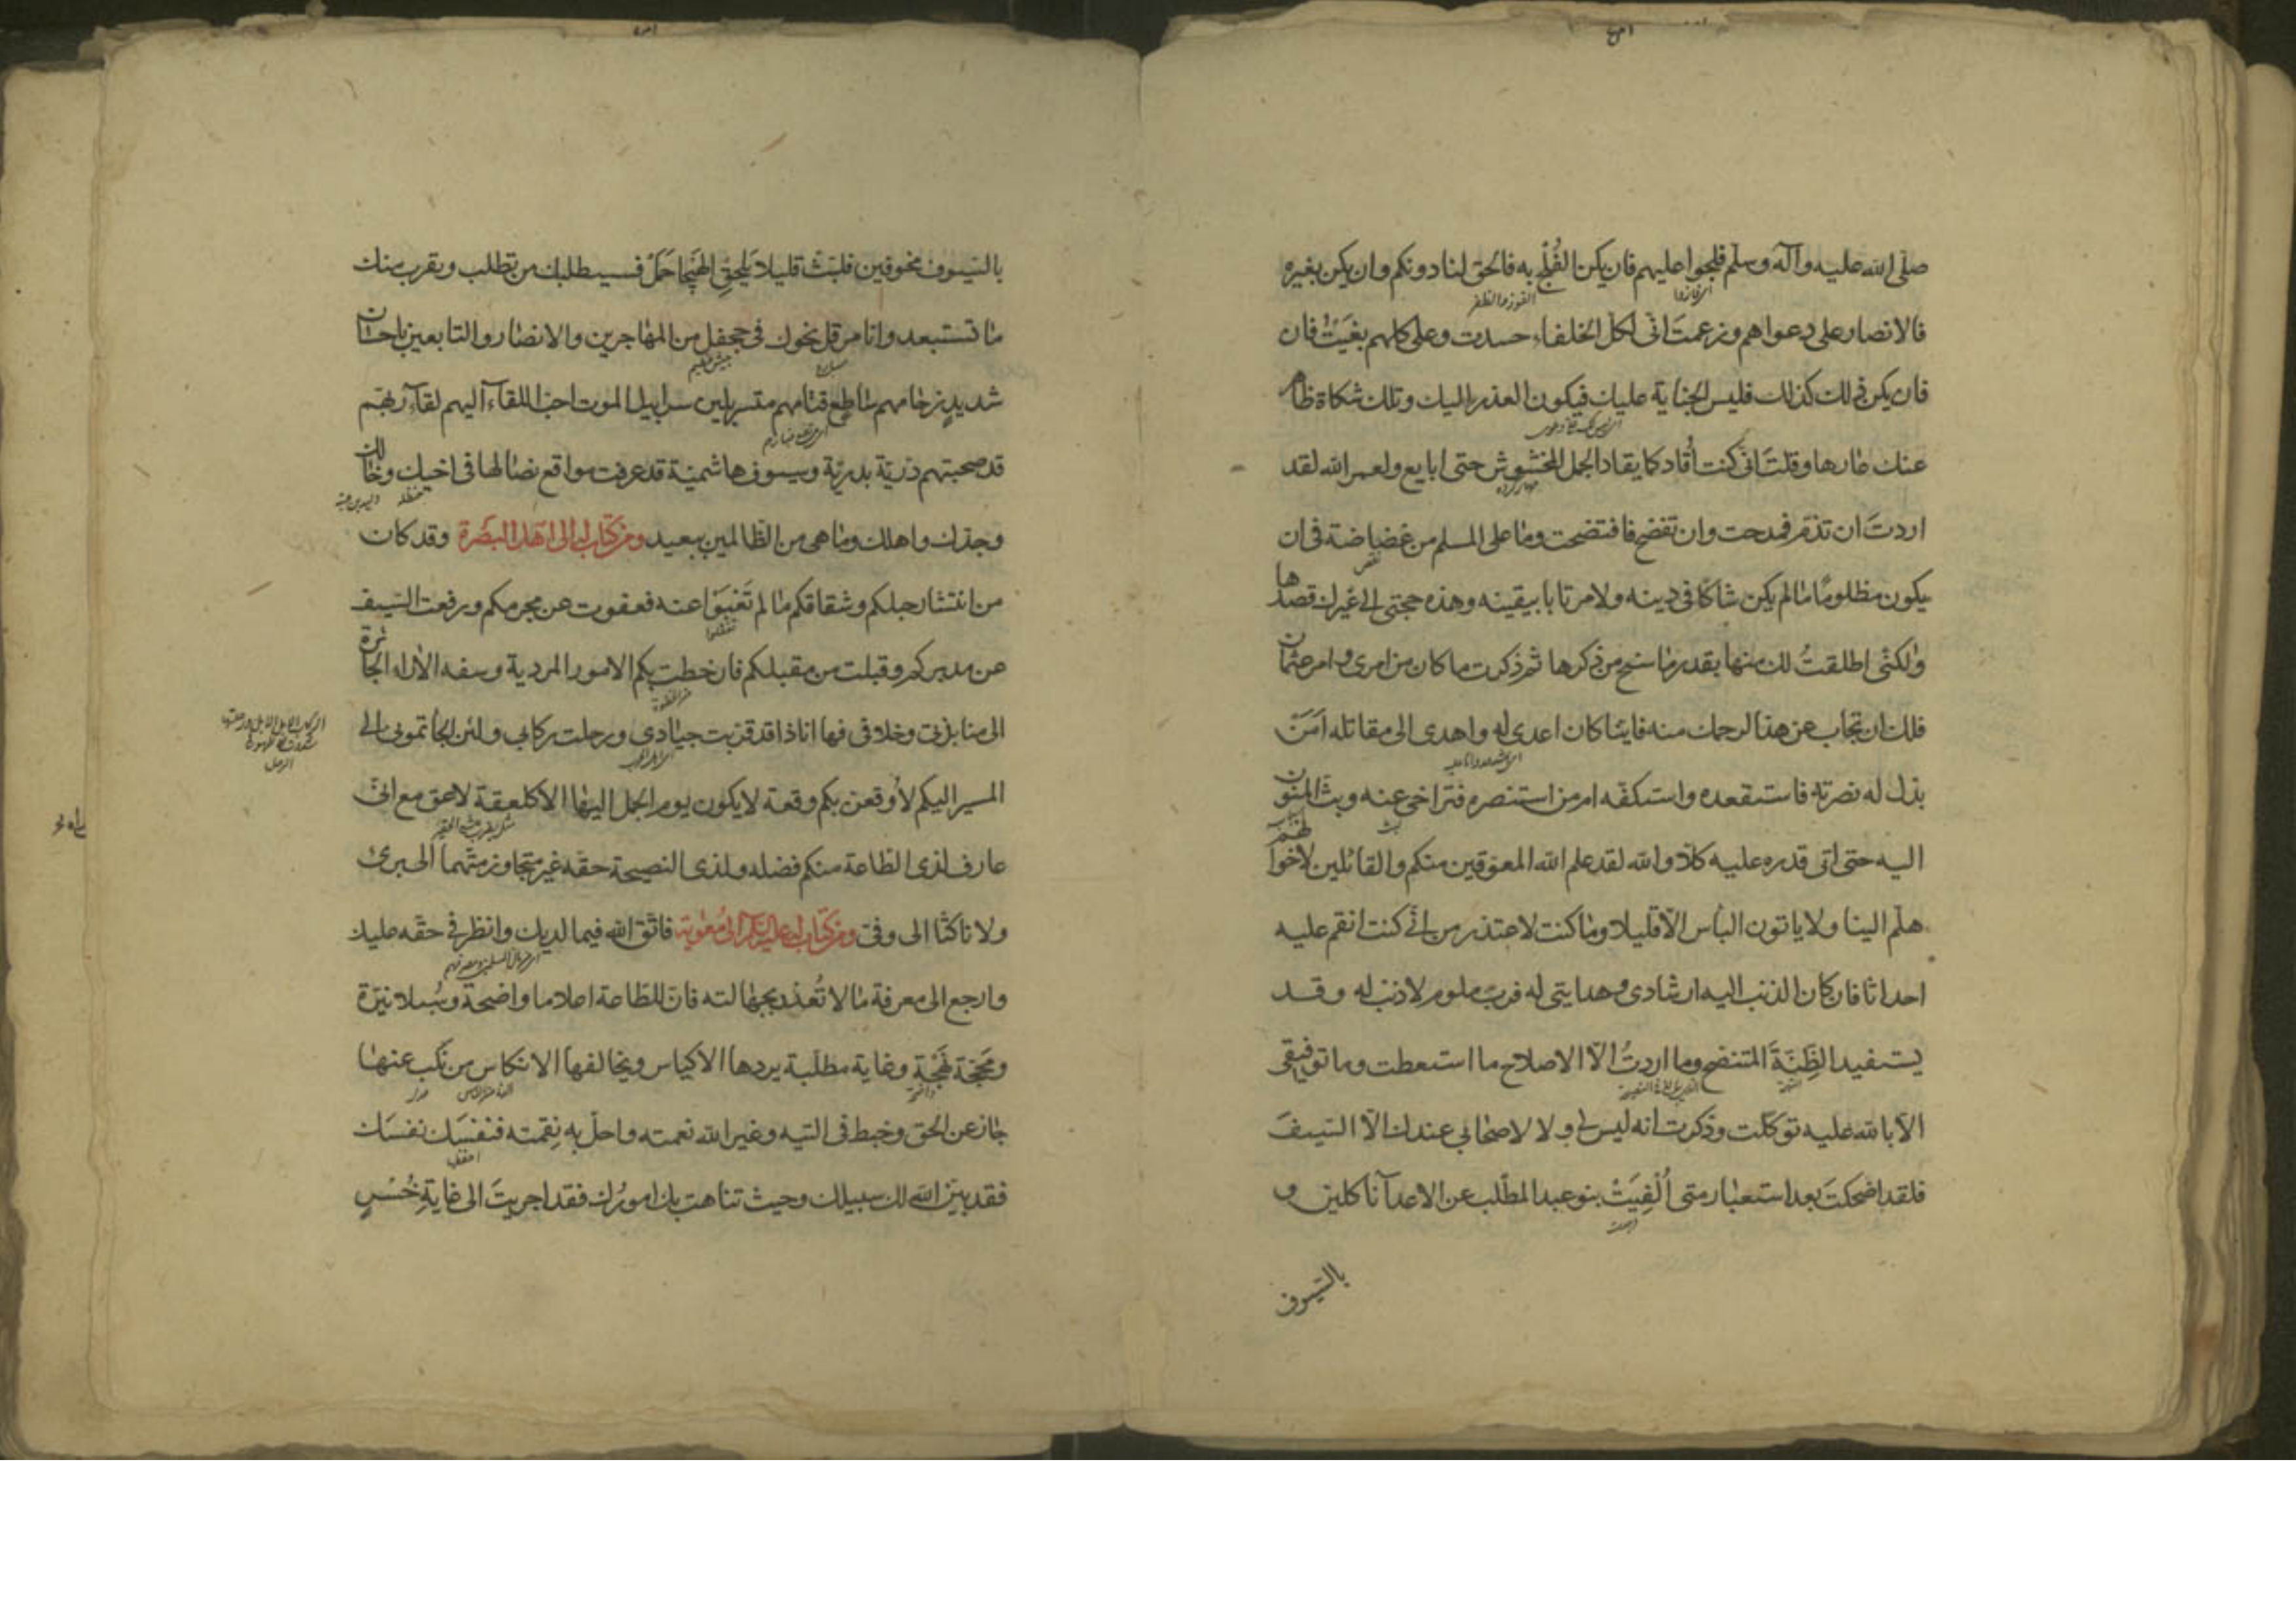 صلّى الله عليه وآله وسلّم فلجوا عليهم فان يكن الفُلْج به فالحق لنا دونكم وان يكن بغيره
اى فازوا الفوز والظفر
فالانصار على دعواهم وزعمتَ انّى لكل الخلفاء حسدت وعلى كلهم بغيتُ فان
فان يكن ذلك كذلك فليس الجناية عليك فيكون العذر اليك وتلك شكاة ظاهر
عنك عارها وقلتَ انى كنت اُقاد كما يقاد الجمل المخشوش حتى ابايع ولعمر الله لقد
اردتَ ان تذمّ فمدحت وان تفضح فافتضحت وما على المسلم من غضاضة فى ان
نقص
يكون مظلومًا ما لم يكن شاكا فى دينه ولا مرتابا بيقينه وهذه حجتى الى غيرك قصدها
ولكنّى اطلقتُ لك منها بقدر ما سنح من ذكرها ثم ذكرت ما كان من امرى و امر عثمان
فلك ان تجاب عن هذا لرحمك منه فايّنا كان اعدى له واهدى الى مقاتله اَمَنْ
بذل له نصرته فاستقعده واستكفّه ام من استنصره فتراخى عنه وبثّ المنون
اليه حتى اتى قدره عليه كلّا والله لقد علم الله المعوّقين منكم والقائلين لاخوانهم
هلّم الينا ولا ياتون البأس الّا قليلا وما كنت لاعتذر من انّى كنت انقم عليه
احداثا فان كان الذنب اليه ارشادى وهدايتى له فربّ ملوم لا ذنب له وقد
يستفيد الظِنّةَ المتنصح وما اردتُ الّا الاصلاح ما استطعت وما توفيقى
التهمة
الّا بالله عليه توكّلت وذكرت انه ليس لى ولا لاصحابى عندك الّا السّيفَ
فلقد اضحكتَ بعد استعبار متى اُلْفِيَتْ بنو عبد المطّلب عن الاعدآء ناكلين و
بالسّيوف
بالسّيوف مخوفين فلبّث قليلا يلحق الهيجا حمل فسيطلبك من تطلب ويقرب منك
ما تستبعد وانا مرقل نحوك فى جحفل من المهاجرين والانصار والتابعين باحسان
جيش عظيم
شديد زحامهم ساطع قتامهم متسربلين سرابيل الموت احبّ اللقاء اليهم لقاء ربّهم
قد صحبتهم ذريّة بدريّة وسيوف هاشميّة قد عرفت مواقع نصالها فى اخيك وخالك
حنظله وليد بن عتبه
وجدّك واهلك وما هى من الظالمين ببعيد ومن كتاب له الى اهل البصرة وقد كان
من انتشار حبلكم وشقاقكم ما لم تَغْبَوْا عنه فعفوت عن مجرمكم ورفعت السّيف
عن مدبركم وقبلت من مقبلكم فان خطت بكم الامور المردية وسفه الآراء الجائرة
الى منابذتى وخلافى فها انا ذا قد قرّبت جيادى ورحلت ركابى ولئن الجاتمونى الى
المسير اليكم لأوقعن بكم وقعة لا يكون يوم الجمل اليها الّا كلعقة لاعق مع انّى
عارف لذى الطاعة منكم فضله ولذى النصيحة حقّه غير متجاوز متّهما الى برئ
ولا ناكثا الى وفىّ ومن كتاب له عليه السّلم الى معوية فاتّق الله فيما لديك وانظر فى حقّه عليك
وارجع الى معرفة ما لا تُعْذر بجهالته فانّ للطاعة اعلاما واضحة وسُبلا نيّرة
ومَحَجّة نَهْجَة وغاية مطلّبة يردها الاكياس ويخالفها الانكاس من نكّب عنها
جار عن الحق وخبط فى التيه وغير الله نعمته واحلّ به نِقمته فنفسَك نفسَك
فقد بيّن الله لك سبيلك وحيث تناهت بك امورُك فقد اجريتَ الى غايةِ خُسْرٍ